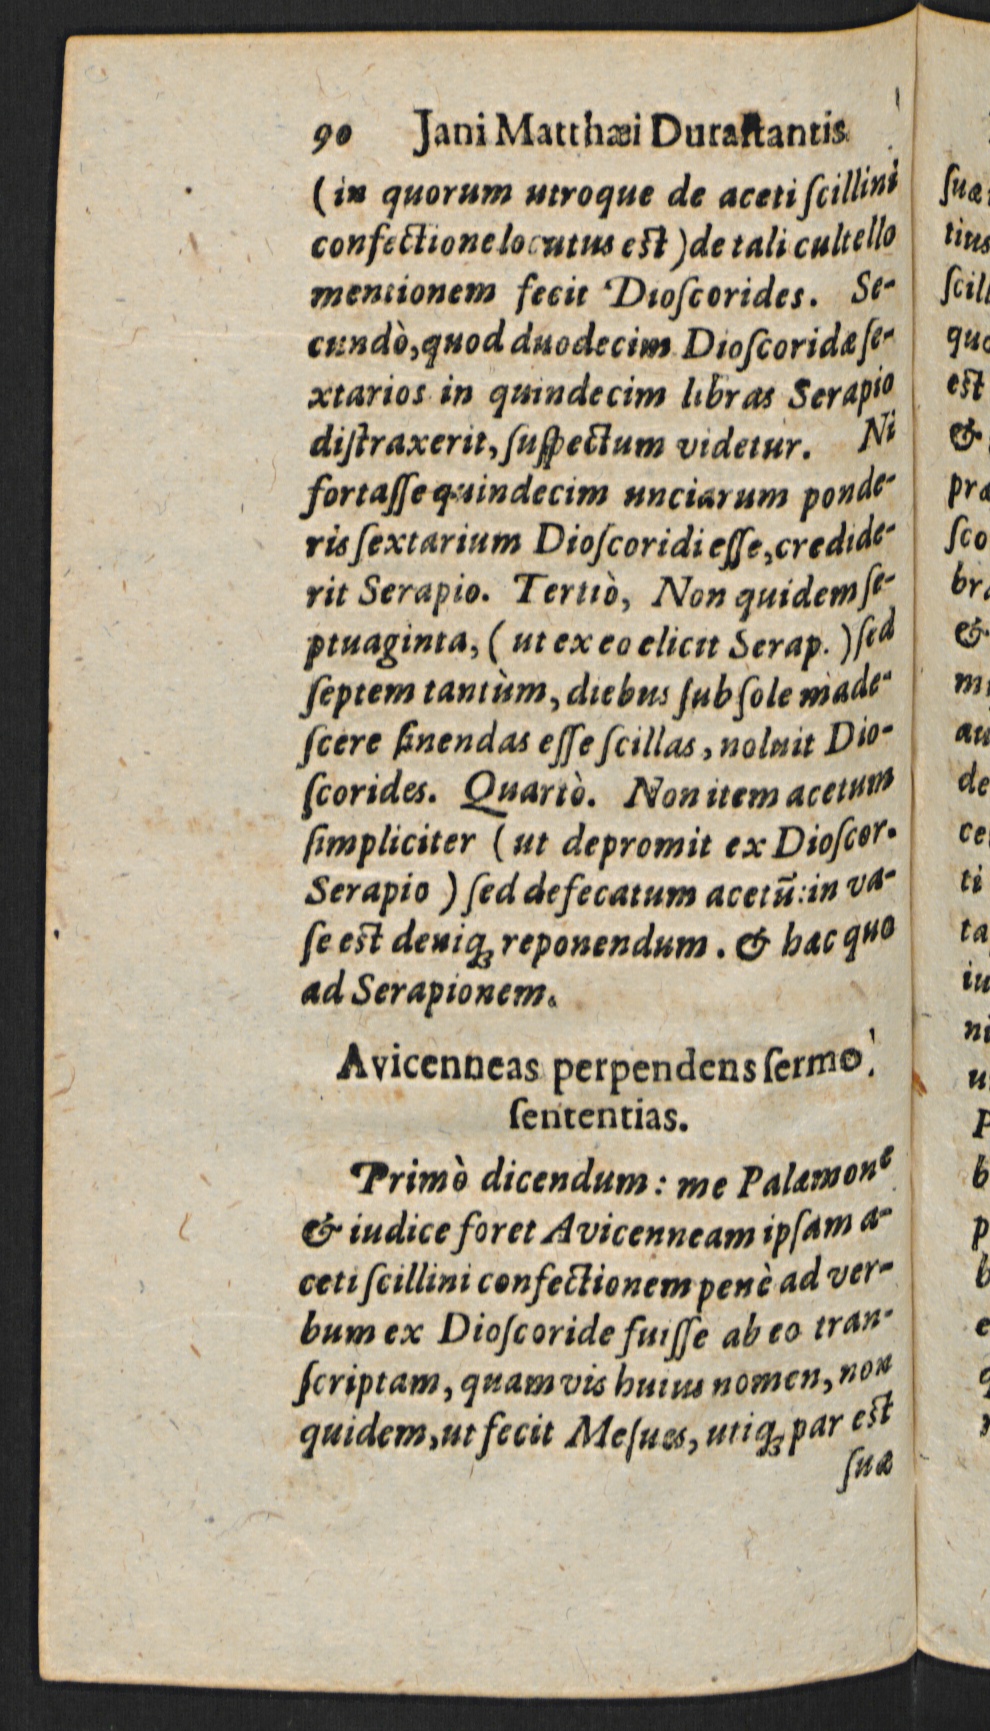 90 Jani Matthæi Durastantis
(in quorum utroque de aceti ſcillini
confectione locutus est) de tali cultello
mentionem fecit Dioſcorides. Se-
cundò, quod duodecim Dioſcoridæ ſe-
xtarios in quindecim libras Serapio
diſtraxerit, ſuſpectum videtur. Ni
fortaſſe quindecim unciarum ponde-
ris ſextarium Dioſcoridi eſſe, credide-
rit Serapio. Tertiò, Non quidem ſe-
ptuaginta, (ut ex eo elicit Serap.) ſed
ſeptem tantùm, diebus ſub ſole made-
ſcere ſinendas eſſe ſcillas, noluit Dio-
ſcorides. Quartò. Non item acetum
ſimpliciter (ut depromit ex Dioſcor.
Serapio) ſed defecatum acetū: in va-
ſe est deniq; reponendum. & hac quo
ad Serapionem.
Avicenneas perpendens ſermo.
ſententias.
Primò dicendum: me Palæmone
& iudice foret Avicenneam ipſam a-
ceti ſcillini confectionem penè ad ver-
bum ex Dioſcoride fuiſſe ab eo tran-
ſcriptam, quamvis huius nomen, non
quidem, ut fecit Meſues, utiq; par est
ſuæ
ſuæ
tius
ſcill
quo
est
&
præ
ſco
bra
&
au
de
ce
ti
ta
iu
ni
b
p
b
e